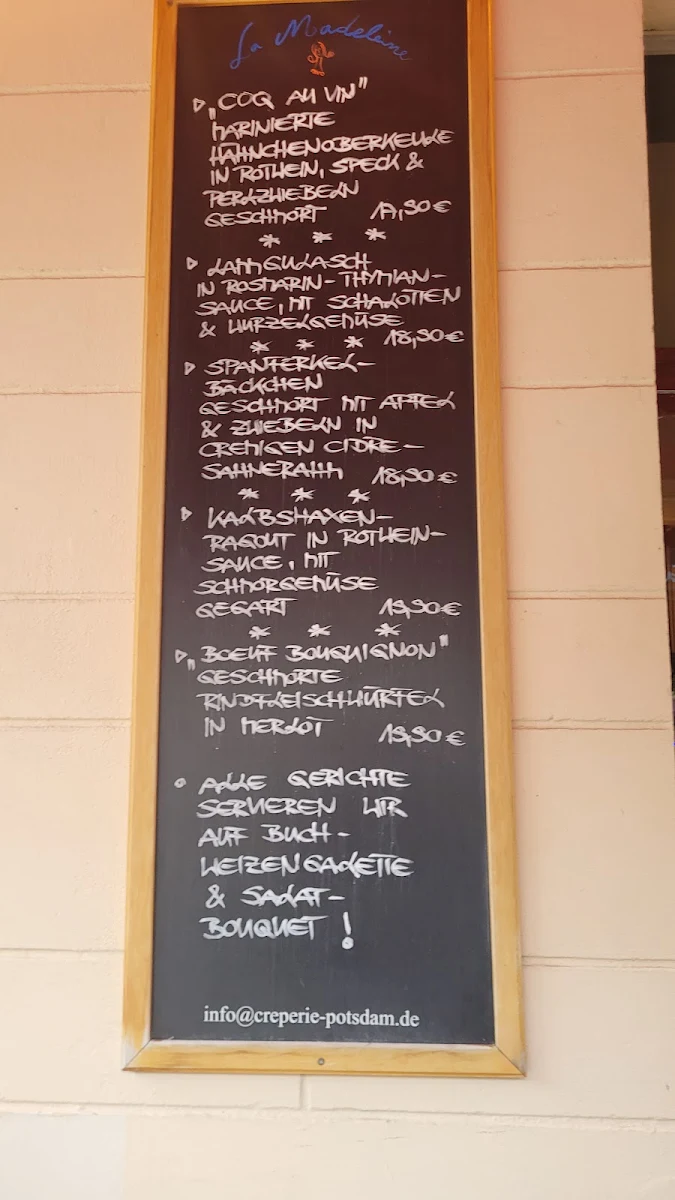 La Madeleine
„COQ AU VIN"
MARINIERTE
HÄHNCHENOBERKEULE
IN ROTWEIN, SPECK &
PERLZWIEBELN
GESCHMORT 17,90€
* * *
LAMMGULASCH
IN ROSMARIN-THYMIAN-
SAUCE, MIT SCHALOTTEN
& WURZELGEMÜSE
* * * 18,90€
SPANFERKEL-
BÄCKCHEN
GESCHMORT MIT APFEL
& ZWIEBELN IN
CREMIGEN CIDRE-
SAHNERAHM 18,90€
* * *
KALBSHAXEN-
RAGOUT IN ROTWEIN-
SAUCE, MIT
SCHMORGEMÜSE
GEGART 19,90€
* * *
„BOEUF BOURGUIGNON"
GESCHMORTE
RINDFLEISCHWÜRFEL
IN MERLOT 19,90€
ALLE GERICHTE
SERVIEREN WIR
AUF BUCH-
WEIZENGALETTE
& SALAT-
BOUQUET !
info@creperie-potsdam.de